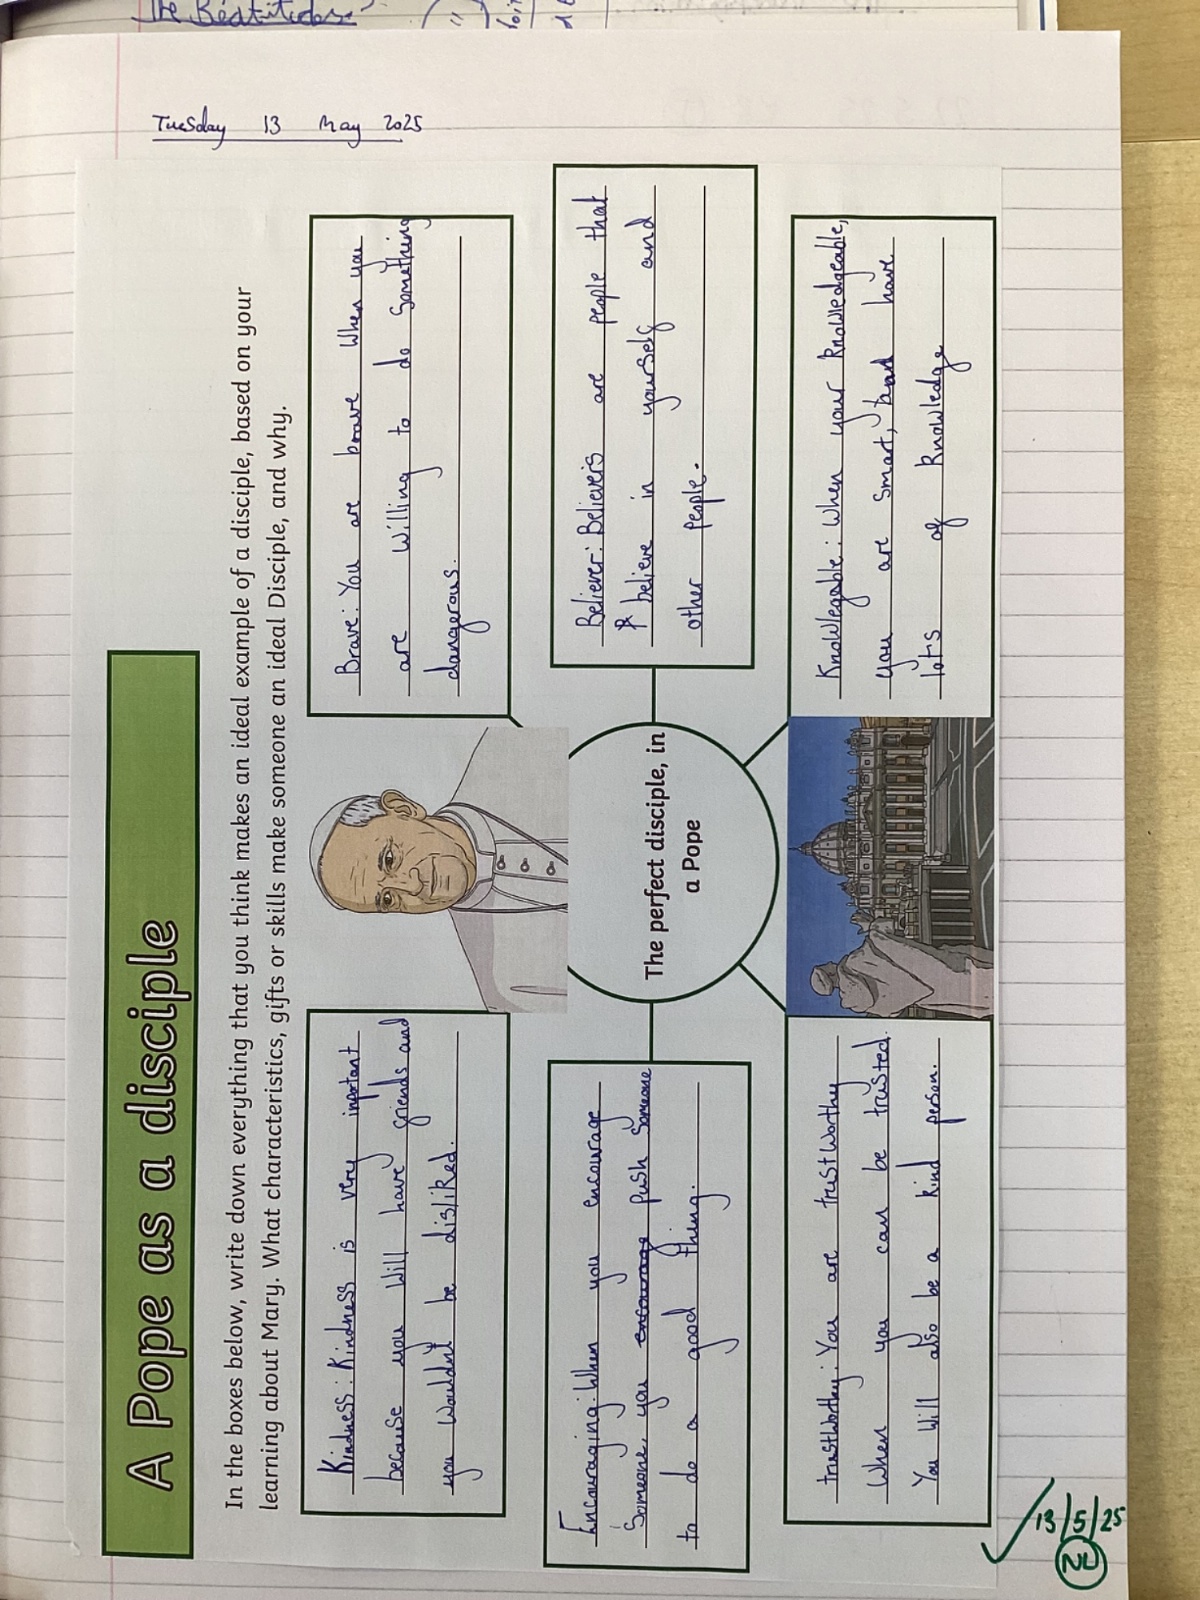 The Beatitudes
Tuesday 13 May 2025
A Pope as a disciple
In the boxes below, write down everything that you think makes an ideal example of a disciple, based on your
learning about Mary. What characteristics, gifts or skills make someone an ideal Disciple, and why.
Kindness: Kindness is very inportant
because you will have friends and
you wouldn't be disliked.
Brave: You are brave when you
are willing to do something
dangerous.
Encouraging: When you encourage
someone, you encourage push someone
to do a good thing.
The perfect disciple, in
a Pope
Believer: Believers are people that
believe in yourself and
other people.
trustworthy: You are trustworthy
when you can be trusted.
You will also be a kind person.
Knowlegable: When your knowledgeable,
you are smart, and have
lots of knowledge
13/5/25